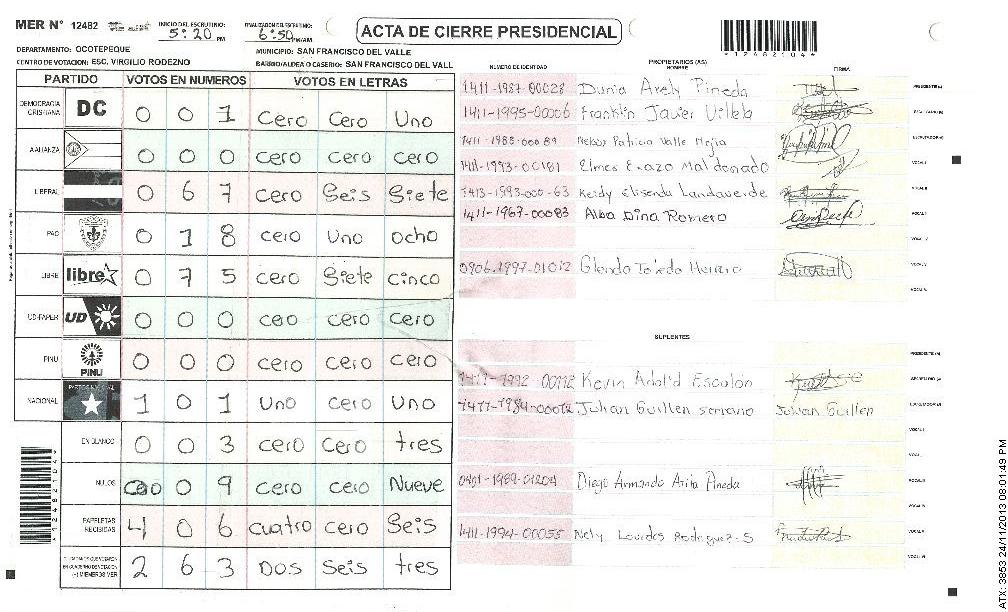 MER N° 12482
INICIO DEL ESCRUTINIO: 5:20 PM
FINALIZACION DEL ESCRUTINIO: 6:50 PM/AM
ACTA DE CIERRE PRESIDENCIAL
*12482104*
DEPARTAMENTO: OCOTEPEQUE
MUNICIPIO: SAN FRANCISCO DEL VALLE
CENTRO DE VOTACION: ESC. VIRGILIO RODEZNO
BARRIO/ALDEA O CASERIO: SAN FRANCISCO DEL VALL
PARTIDO VOTOS EN NUMEROS VOTOS EN LETRAS
DEMOCRACIA CRISTIANA DC 0 0 1 Cero Cero Uno
ALIANZA 0 0 0 cero cero cero
LIBERAL 0 6 7 cero Seis Siete
PAC 0 1 8 cero Uno ocho
LIBRE libre 0 7 5 cero Siete cinco
UD-FAPER UD 0 0 0 ceo cero cero
PINU PINU 0 0 0 cero cero cero
NACIONAL PARTIDO NACIONAL 1 0 1 Uno cero Uno
EN BLANCO 0 0 3 cero cero tres
NULOS 0 0 9 cero cero Nueve
PAPELETAS RECIBIDAS 4 0 6 cuatro cero Seis
(+) MIEMBROS MER 2 6 3 Dos Seis tres
NUMERO DE IDENTIDAD
PROPIETARIOS (AS)
NOMBRE
FIRMA
1411-1987-00028 Dunia Arely Pineda PRESIDENTE (A)
1411-1995-00006 Franklin Javier Villela SECRETARIO (A)
1411-1988-00089 Nelsy Patricia Valle Mejia ESCRUTADOR (A)
1411-1993-00181 Elmer Erazo Maldonado VOCAL I
1413-1993-000-63 Keidy Elisenda Landaverde VOCAL II
1411-1967-00083 Alba Dina Romero
0906-1997-01012 Glenda Toledo Herrera
SUPLENTES
PRESIDENTE (A)
1411-1992-00112 Kevin Adalid Escalón SECRETARIO (A)
1411-1984-00012 Julian Guillen serrano Julian Guillen ESCRUTADOR (A)
0401-1989-01204 Diego Armando Arita Pineda
1411-1994-00055 Nely Lourdes Rodriguez-S
*12482104*
ATX: 3853 24/11/2013 08:01:49 PM